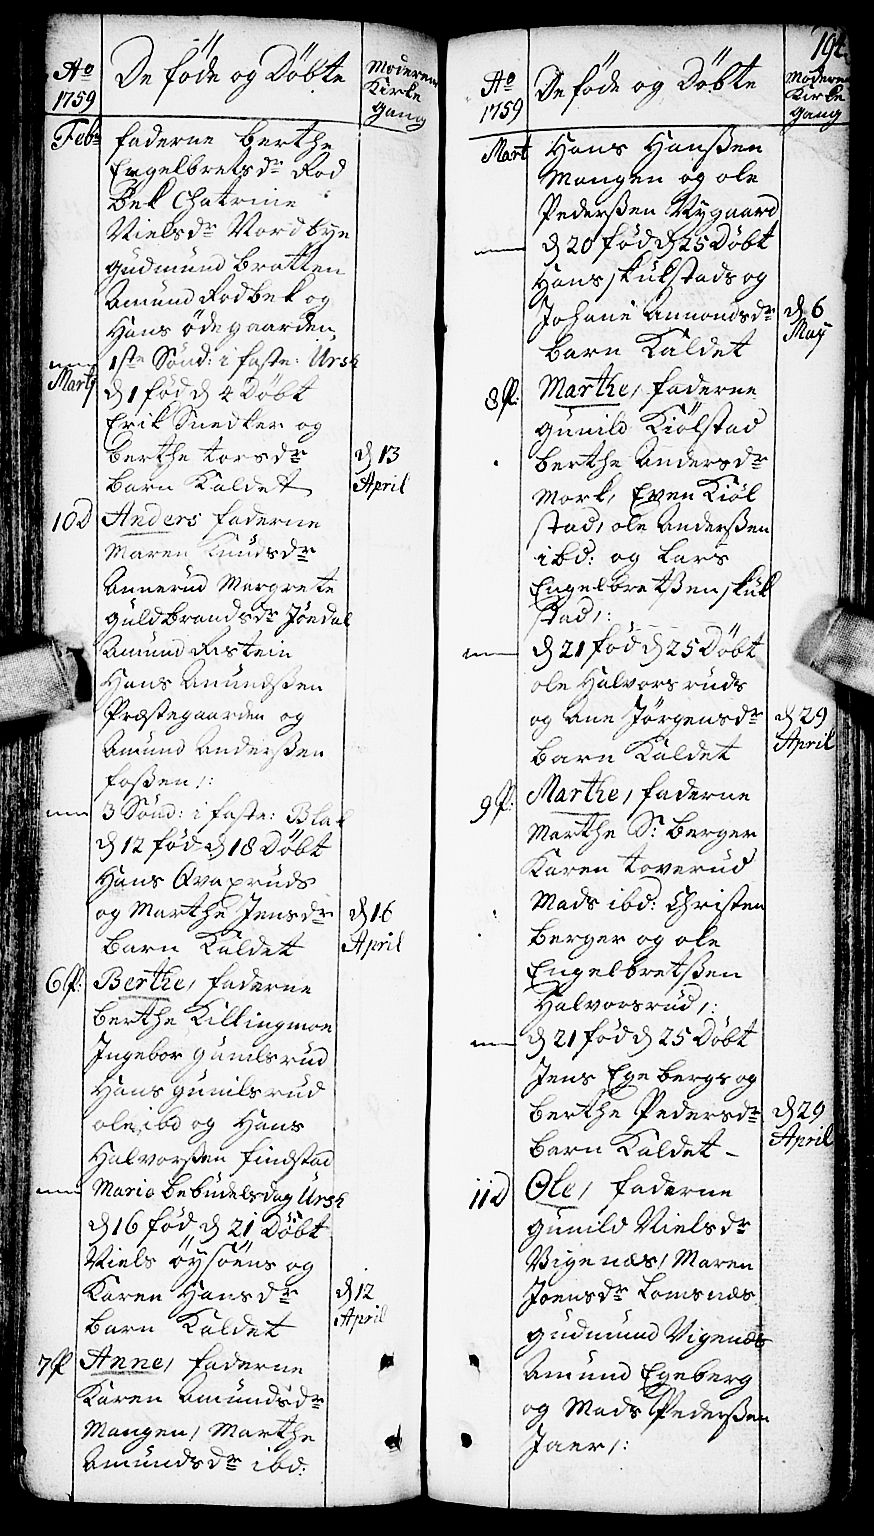 Ao
1759
De föde og Döbte
Moderens
Kirke
gang
Febr
faderne berthe
Engelbretsdr Rod
bek Chatrine
Nielsdr Nordbye
Gudmund bratten
Amund Rodbek og
Hans ödegaarden
1ste Sönd: i faste: Ursk
Marty
d 1 föd d 4 Döbt
Erik Snedker og
berthe torsdr
d 13
barn Kaldet
April
10 D
Anders faderne
Maren Knudsdr
Annerud Margrete
Guldbrandsdr Jöndal
Amund Ristein
Hans Amundssen
Præstegaarden og
Amund Anderssen
fossen /:
3 Sönd: i faste: Blak
d 12 föd d 18 Döbt
Hans Qvapruds
og Marthe Jensdr
d 16
barn Kaldet
April
6 P:
Berthe, faderne
berthe Killingmoe
Ingebor gunilsrud
Hans gunilsrud
ole ibd og Hans
Halvorssen findstad
Maria bebudelsdag Ursk
d 16 föd d 21 Döbt
Niels öysöens og
Karen Hansdr
d 12
barn Kaldet
April
7 P
Anne, faderne
Karen Amundsdr
Mangen, Marthe
Amundsdr ibd:
194
Ao
1759
De föde og Döbte
Moderens
Kirke
gang
Mart
Hans Hanssen
Mangen og ole
Pederssen Nygaard
d 20 föd d 25 Döbt
Hans skukstads og
Johane Amondsdr
d 6
May
barn Kaldet
8 P:
Marthe, faderne
gunild Kiölstad
berthe Andersdr
Mork, Even Kiöl
stad, ole Anderssen
ibd: og Lars
Engelbretssen skuk
stad /:
d 21 föd d 25 Döbt
ole Halvorsruds
og Ane Jörgensdr
d 29
barn Kaldet
April
9 P:
Marthe, faderne
Marthe S: berger
Karen toverud
Mads ibd: Christen
berger og ole
Engelbretssen
Halvorsrud /:
d 21 föd d 25 Döbt
Jens Egebergs og
berthe Pedersdr
d 29
barn Kaldet
April
11 D
Ole, faderne
gunild Nielsdr
Vigenæs, Maren
Joensdr Lomsnæs
gudmund Vigenæs
Amund Egeberg
og Mads Pederssen
Jaer /: